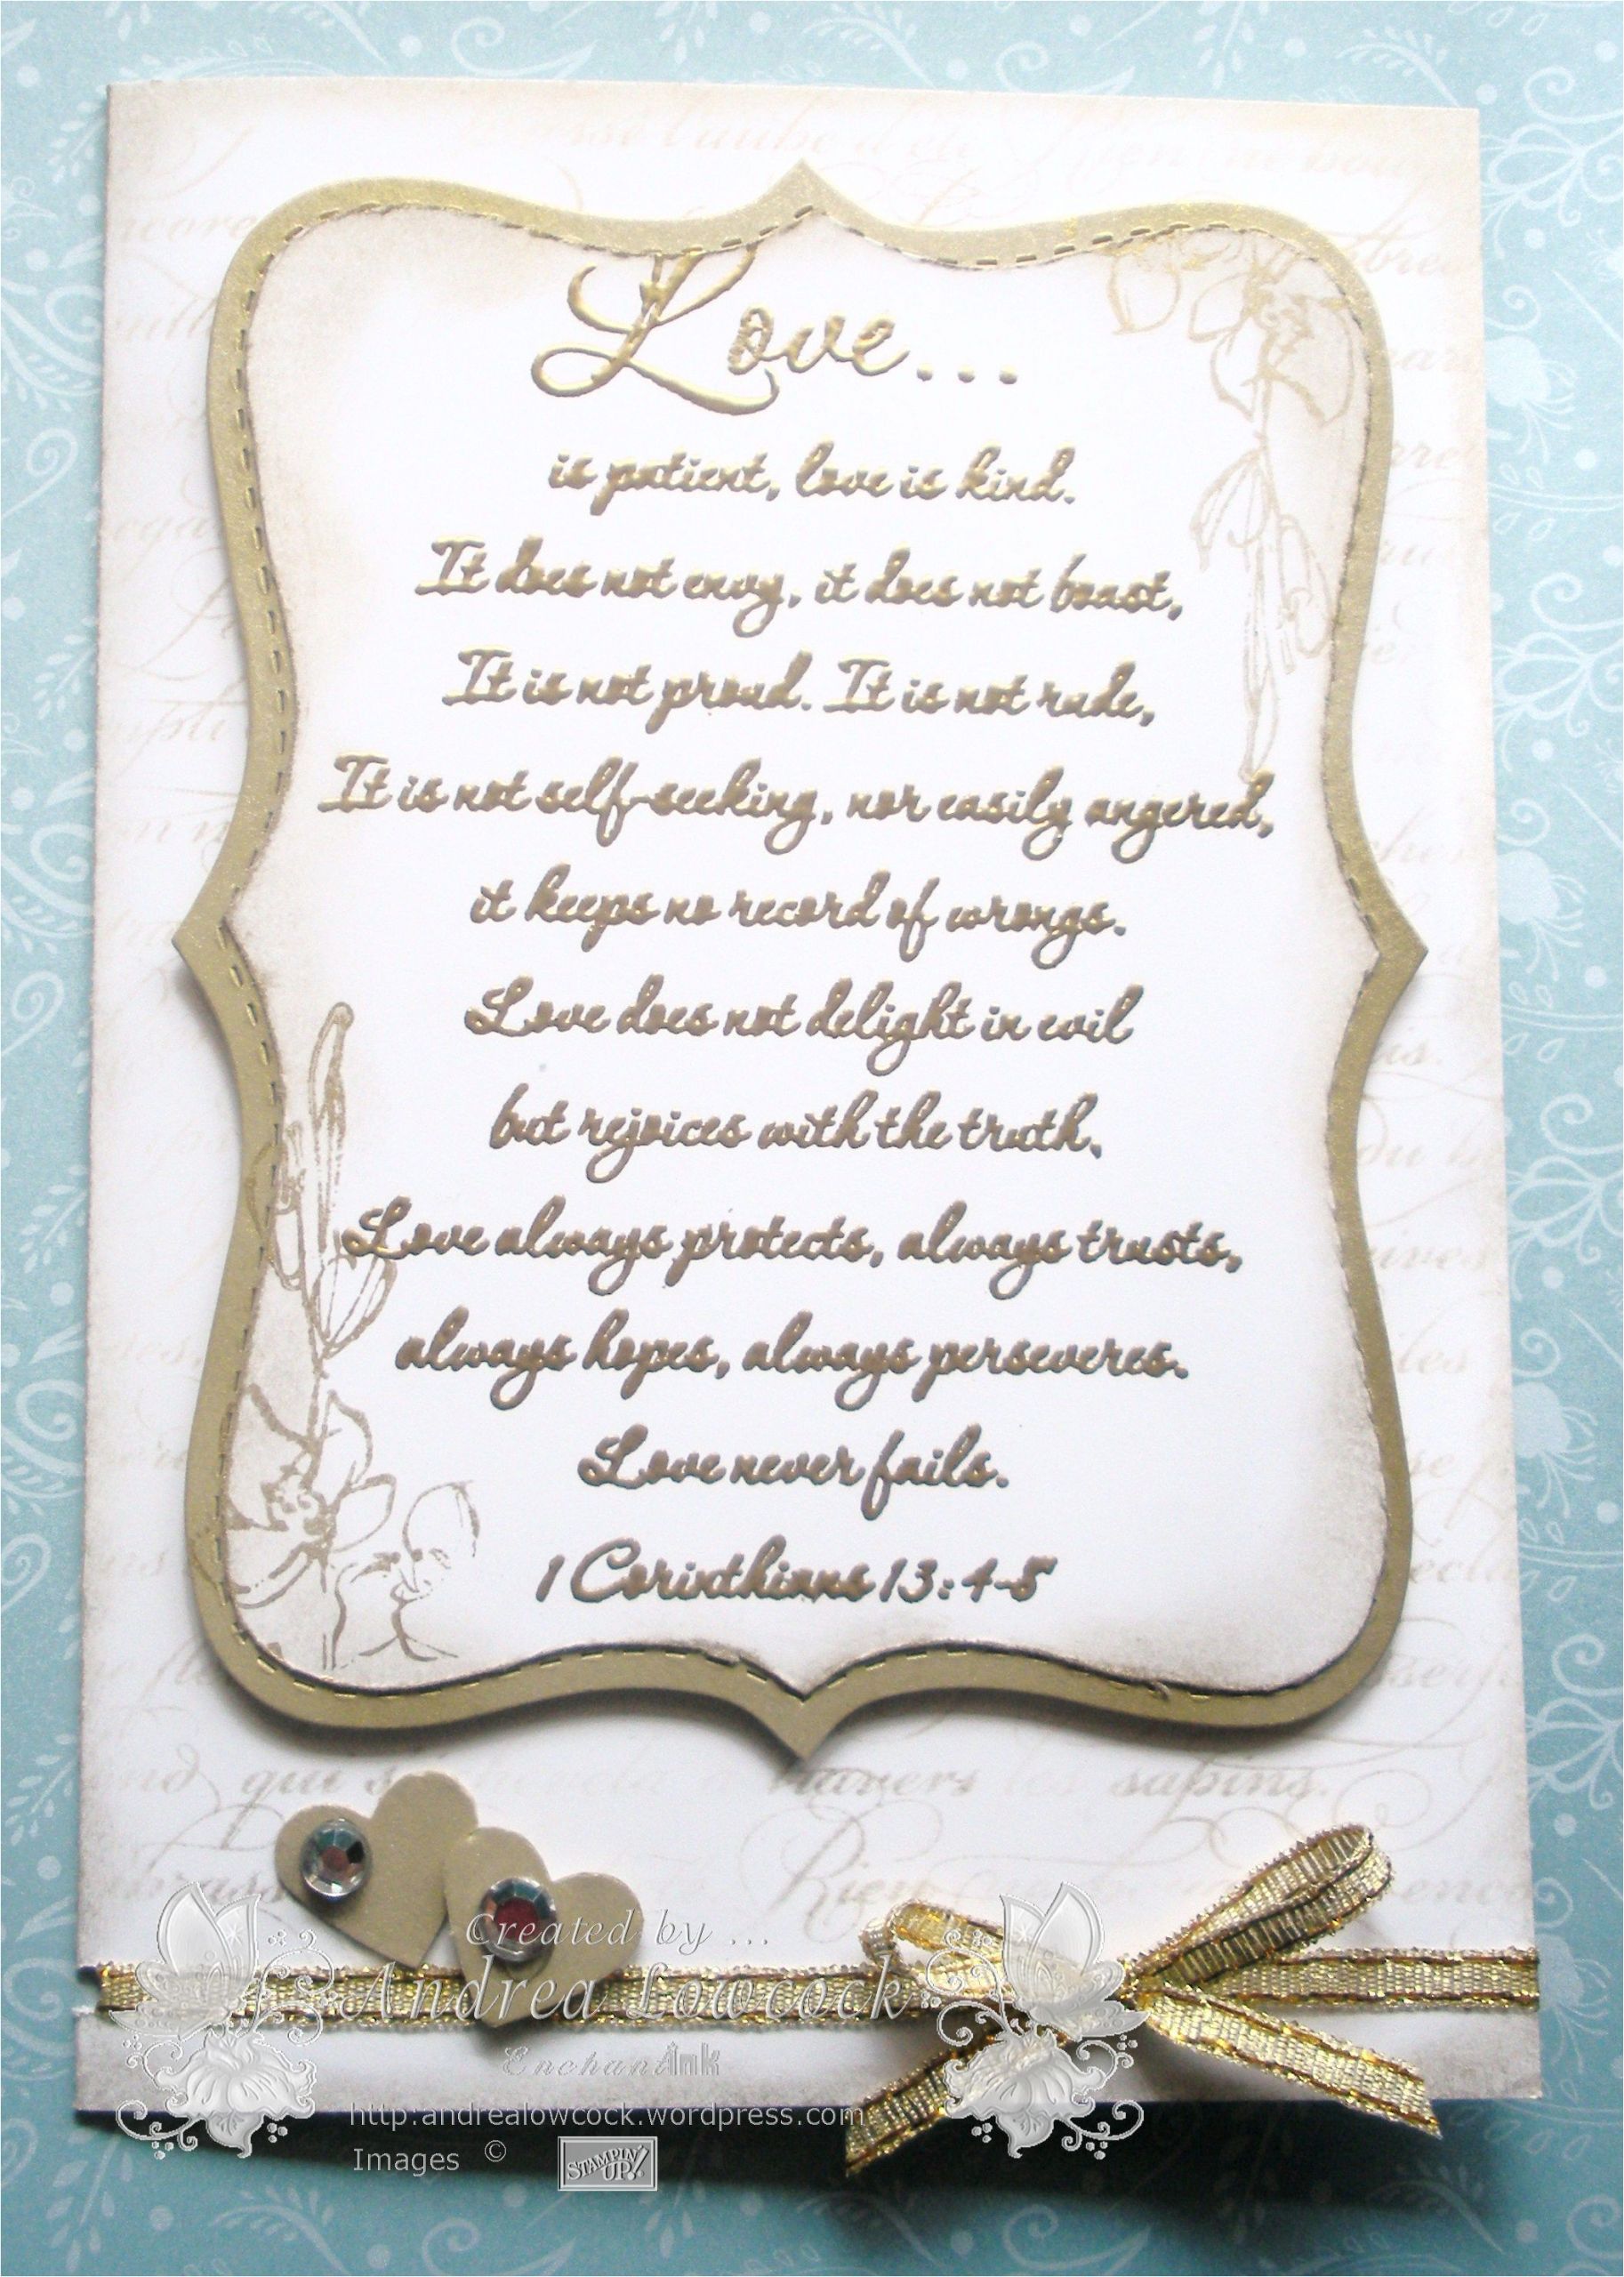 Love...
is patient, love is kind.
It does not envy, it does not boast,
It is not proud. It is not rude,
It is not self-seeking, nor easily angered,
it keeps no record of wrongs.
Love does not delight in evil
but rejoices with the truth.
Love always protects, always trusts,
always hopes, always perseveres.
Love never fails.
1 Corinthians 13:4-8
qui
travers les sapins.
Rien
Created by ...
Andrea Lowcock
Enchantink
http:andrealowcock.wordpress.com
Images ©
STAMPIN' UP!